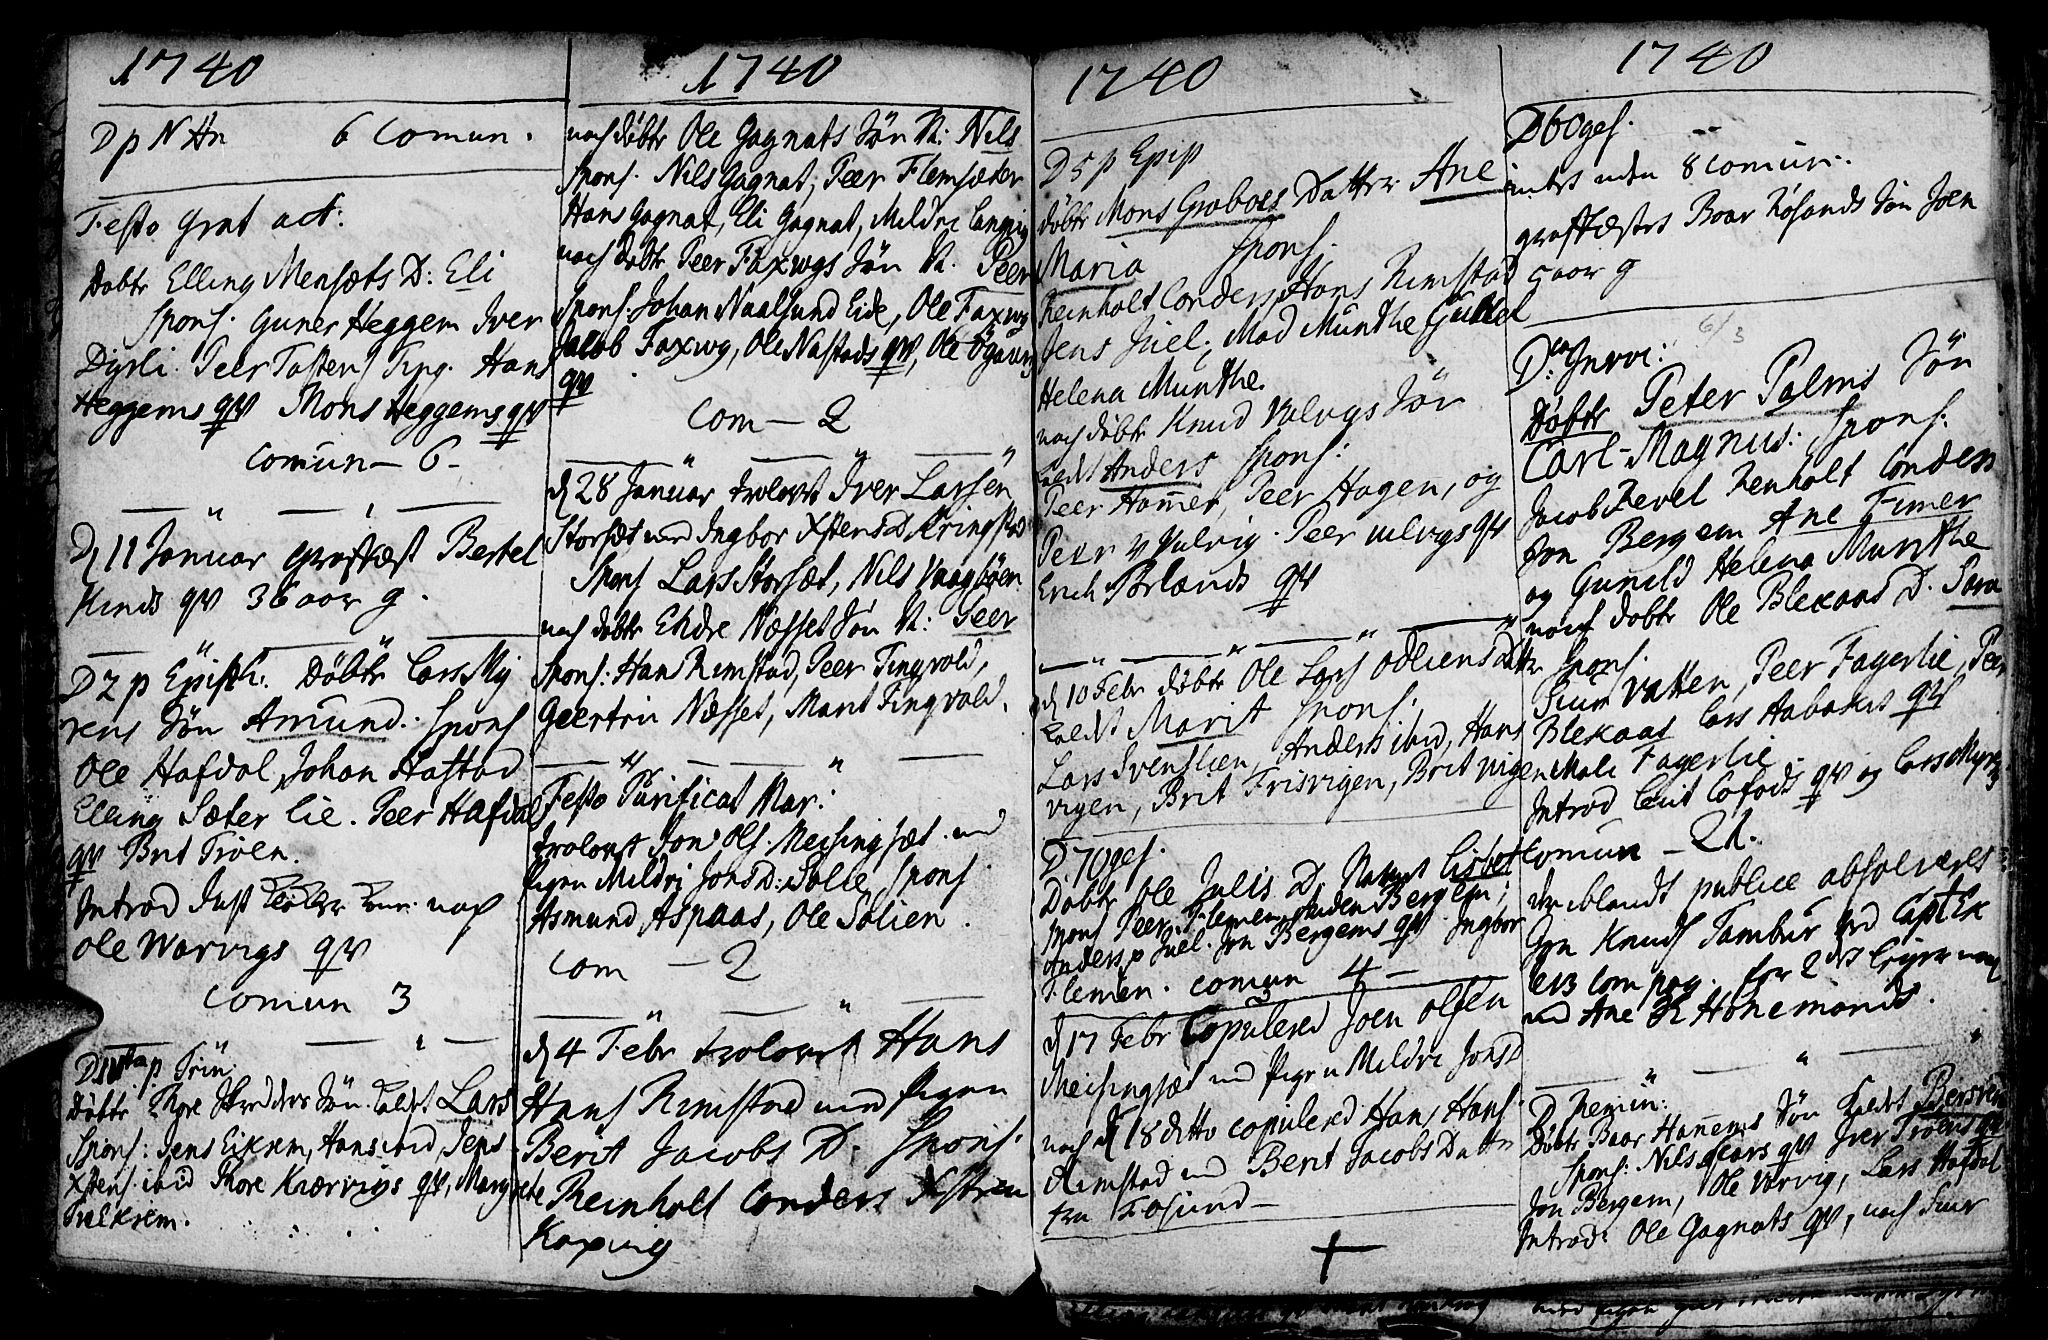 1740
D p N Hn 6 Comun.
Festo Grat act:
Døbte Elling Mensæts D: Eli
Spons. Guner Heggem Iver
Dyrli. Peer Tosten Ting. Hans
Heggems qv Mons Heggems qv
Comun - 6 -
D 11 Januar grafkæst Bertel
Kinds qv 36 aar g.
D 2 p Epiph: Døbte Lars My
rens Søn Amund. Spons
Ole Hafdal, Johan Hafstad
Elling Sæter lie. Peer Hafdal
qv Brit Trøen.
Introd Just nax
Ole Warvigs qv
Comun 3
p Trin
Døbte Thore Skredders Søn Kaldet Lars
Spons: Jens Eikrem, Hans ibid, Jens
Xstens ibid Thore Kiærvigs qv, Margrete
Trælkrem.
1740
noch døbte Ole Gagnats Søn N: Nils
Spons. Nils Gagnat, Peer Flemsæter
Hans Gagnat, Eli Gagnat, Mildri Langvig
noch døbte Peer Faxvgs Søn N. Peer
Spons: Johan Naalsund Eide, Ole Faxvg
Jacob Faxvg, Ole Nastads qv, Ole Øgaren
qv
Com - 2
d 28 Januar trolovet Iver Larsen
Storsæt med Ingbor Xstens D Kringstad
Spons Lars Storsæt, Nils Vaagbøen
noch døbte Endre Næsset Søn N: Peer
Spons: Hans Rimstad, Peer Tingvold,
Geertru Næsset, Marit Tingvold.
Festo Purificat Mar:
trolovet Jon Ols. Meisingsæt med
Pigen Mildri Jons D: Solie, Spons
Asmund Aspaas, Ole Solien.
Com - 2
d 4 Febr trolovet Hans
Hans Rimstad med Pigen
Berit Jacobs D. Spons.
Reinholt Conders Xsten
Koxvig
1740
D 5 p Epip
døbte Mons Graboes Datter Ane
Maria Spons.
Reinholt Conders Hans Rimstad
Jens Juel, Mad Munthe Gunel
Helena Munthe.
noch døbte Knud Valvgs Søn
Kaldt Anders Spons:
Peer Hamer, Peer Hagen, og
Peer Valvig. Peer valvgs qv
ErichØrlands qv
d 10 Febr døbte Ole Lars Odliens Datter
Kaldt Marit Spons.
Lars Svenslien, Anders ibid, Hans
vigen, Brit Frisvigen, Brit vigen
D. 70ges.
Døbte Ole Julis D. Nafnet Lisbet
Spons Peer Flemen, Bergem,
Anders Juel. Jon Bergems qv Ingbor
Flemen. Comun 4 -
d 17 Febr Copulered Joen Olsen
Meisingsæt med Pigen Mildri Jons D
noch d 18 ditto copulered Hans Hans.
Rimstad med Berit Jacobs Datter
fra Fosund -
1740
D 60ges.
intet uden 8 Comun.
grafkæstes Boar Røsands Søn Joen
5 aar g
6/3
Invoc:
Døbte Peter Palms Søn
Carl-Magnus: Spons.
Jacob Zevel Renholt Conders
Jon Bergem Ane Fimer
og Gunild Helena Munthe
noch døbte Ole Blekaas D. Sara
Spons.
Siur Vatten, Peer Fagerlie, Peer
Blekaas Lars Aabakes qv
Mali Fagerlie.
Introd Leut Cofods qv og Lars Myrens
Comun - 21.
iblandt publice absolveres
Knuds Tambur ved Capt Ek
Compag. for
med Ane K Honemonds.
D Remin:
Døbte Baar Hamems Søn Kaldet Bersven
Spons: Nils qv Iver Trøens qv
Jon Bergem, Ole Varvig, Lars Hafdal
Introd: Ole Gagnats qv, noch Siur